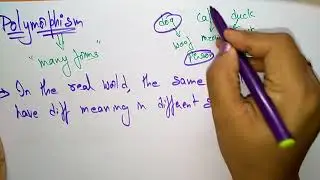 Polymorphism
"many forms"
dog
duck
person
→ In the real world, the same
have diff meaning in different